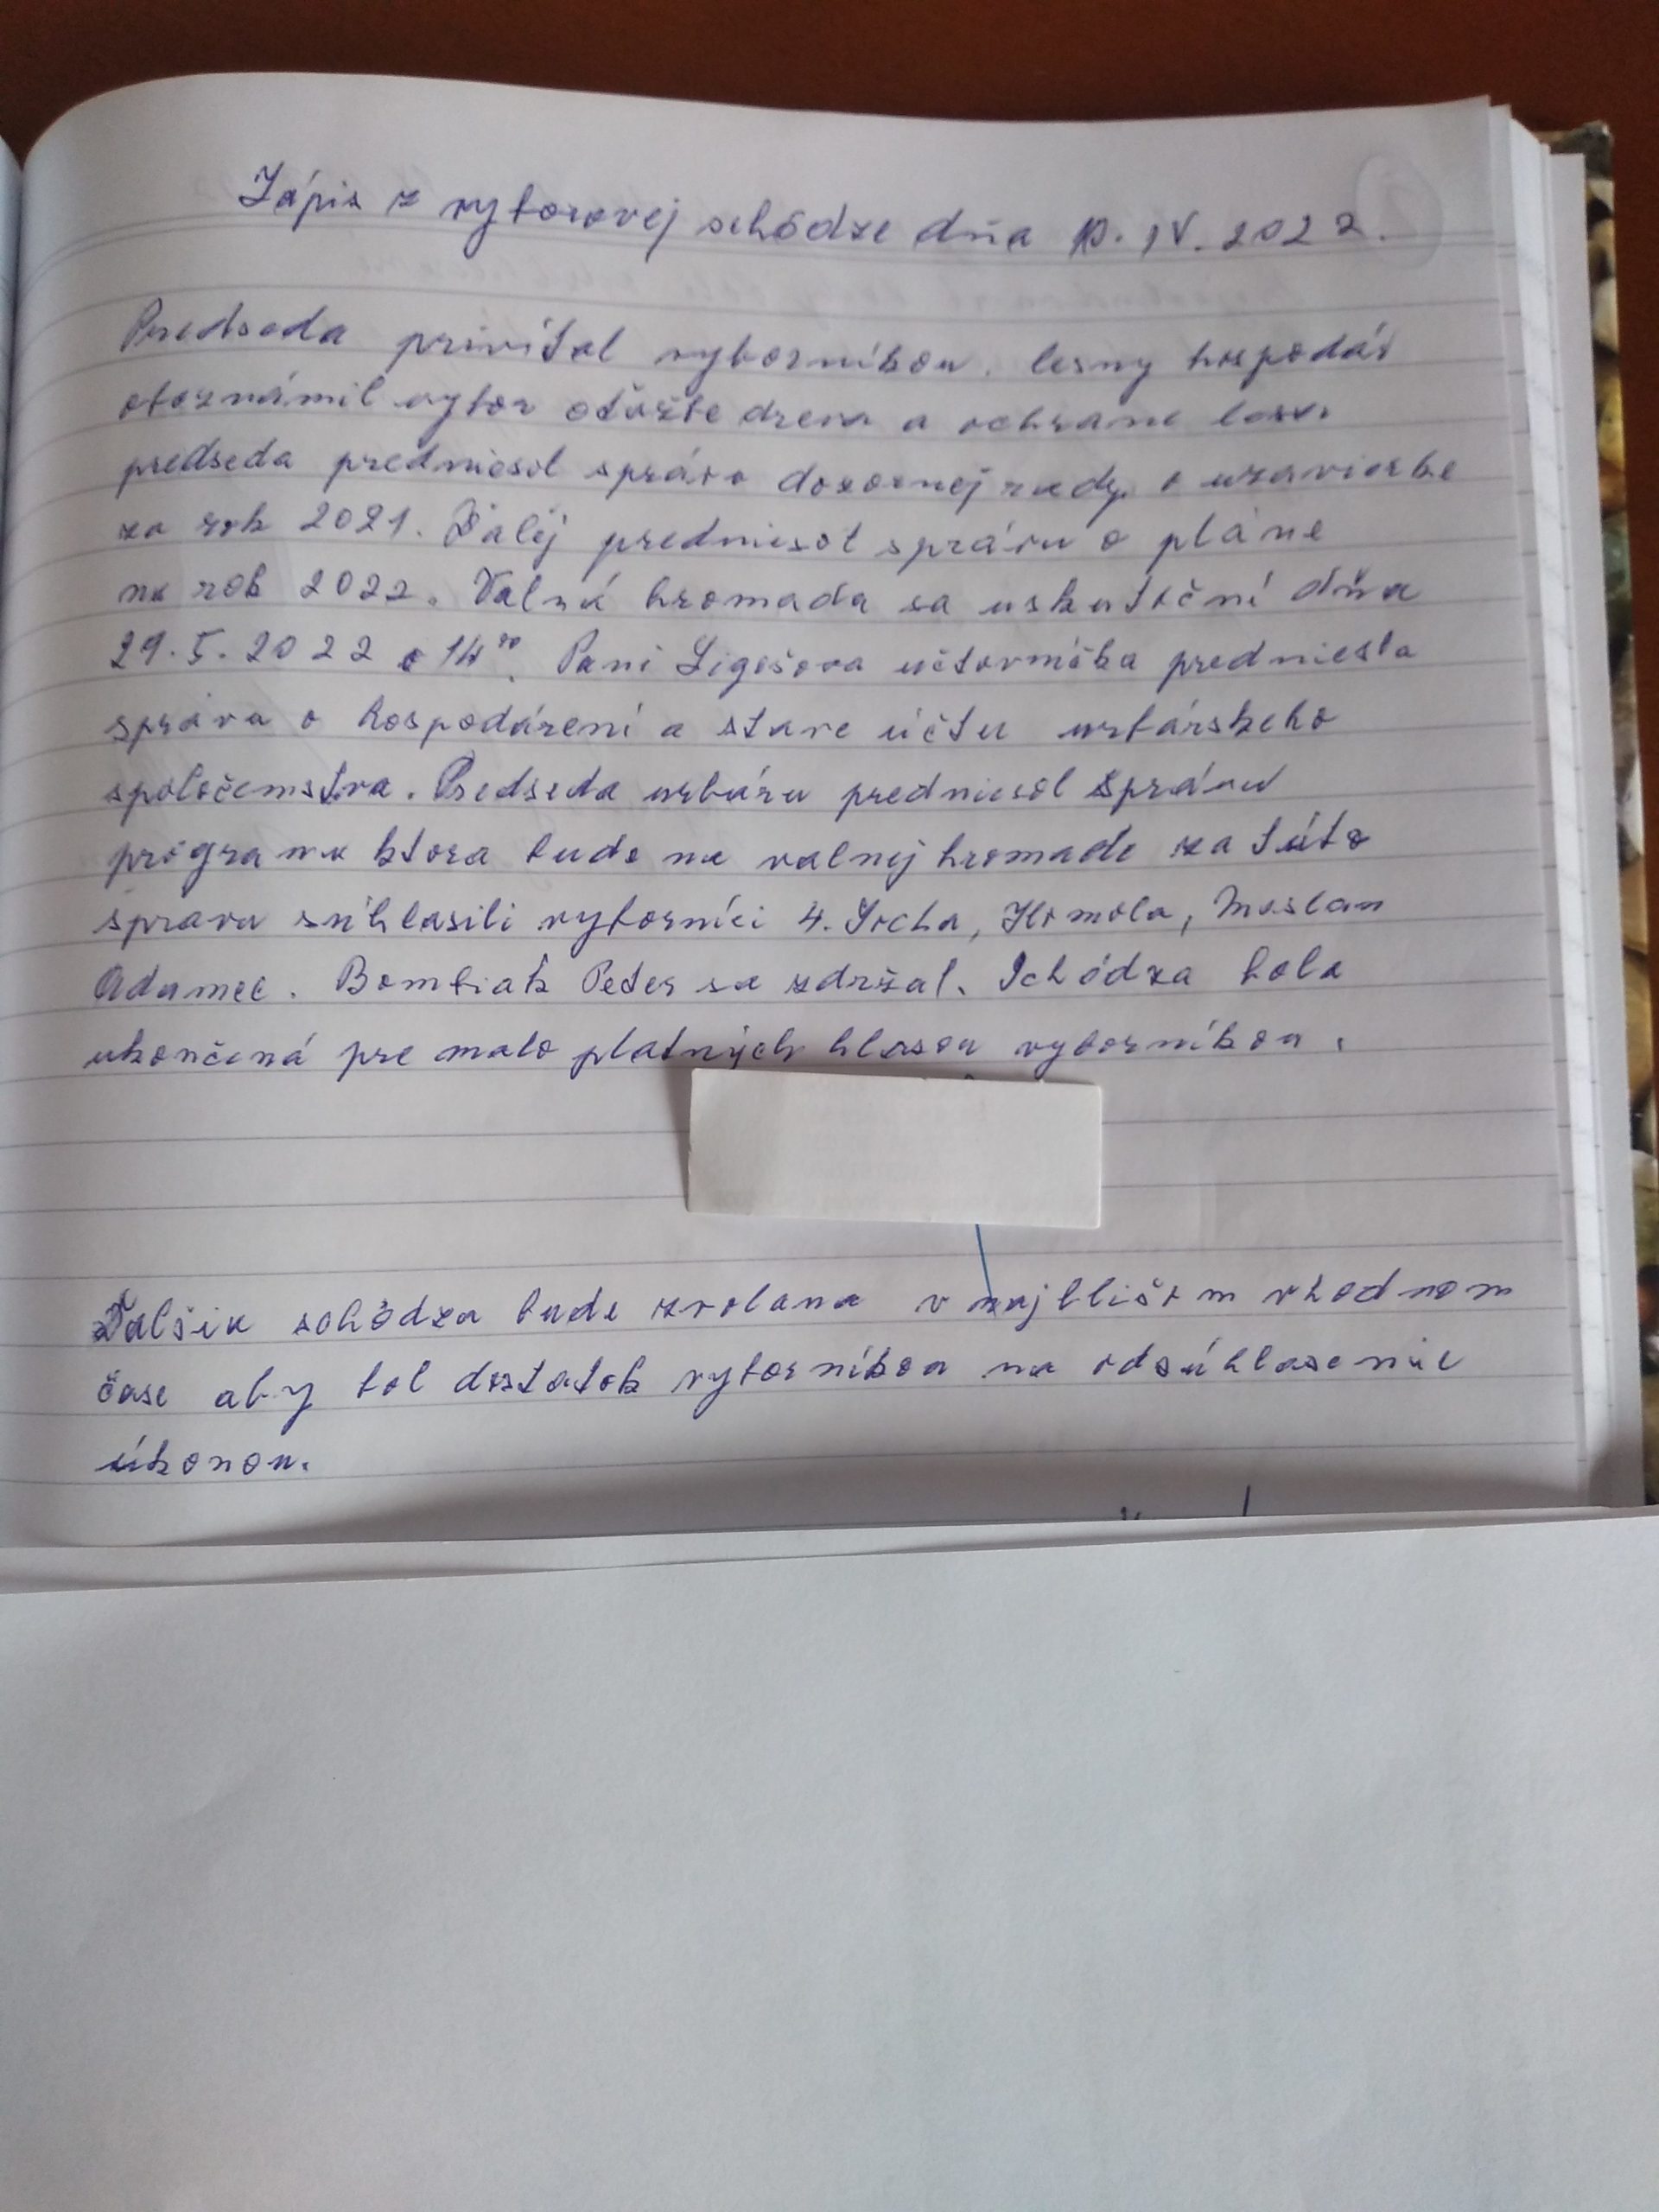 Zápis z vyborovej schôdze dňa 10. IV. 2022.
Predseda privítal vyborníkou. lesny hospodár
oboznámil vybor oťažbe dreva a ochrane lesa.
predseda predniesol správu dozornej rady. o uzavierke
za rok 2021. Ďalej predniesol správu o pláne
na rok 2022. Valná hromada sa uskutoční dňa
29.5.2022 o 14⁰⁰. Pani Ligošova učtovníčka predniesla
správu o hospodárení a stave účtu urbárskeho
spoločenstva. Predseda urbáru predniesol správu
programu ktora bude na valnej hromade za túto
spravu súhlasili vyborníci 4. Socha, Homola, Maslan
Adamec. Bombiak Peter sa zdržal. Schôdza bola
ukončená pre malo platných hlasou vyborníkou.
Ďalšia schôdza bude zvolana v najbližšom vhodnom
čase aby bol dostatok vyborníkou na odsúhlasenie
úkonou.